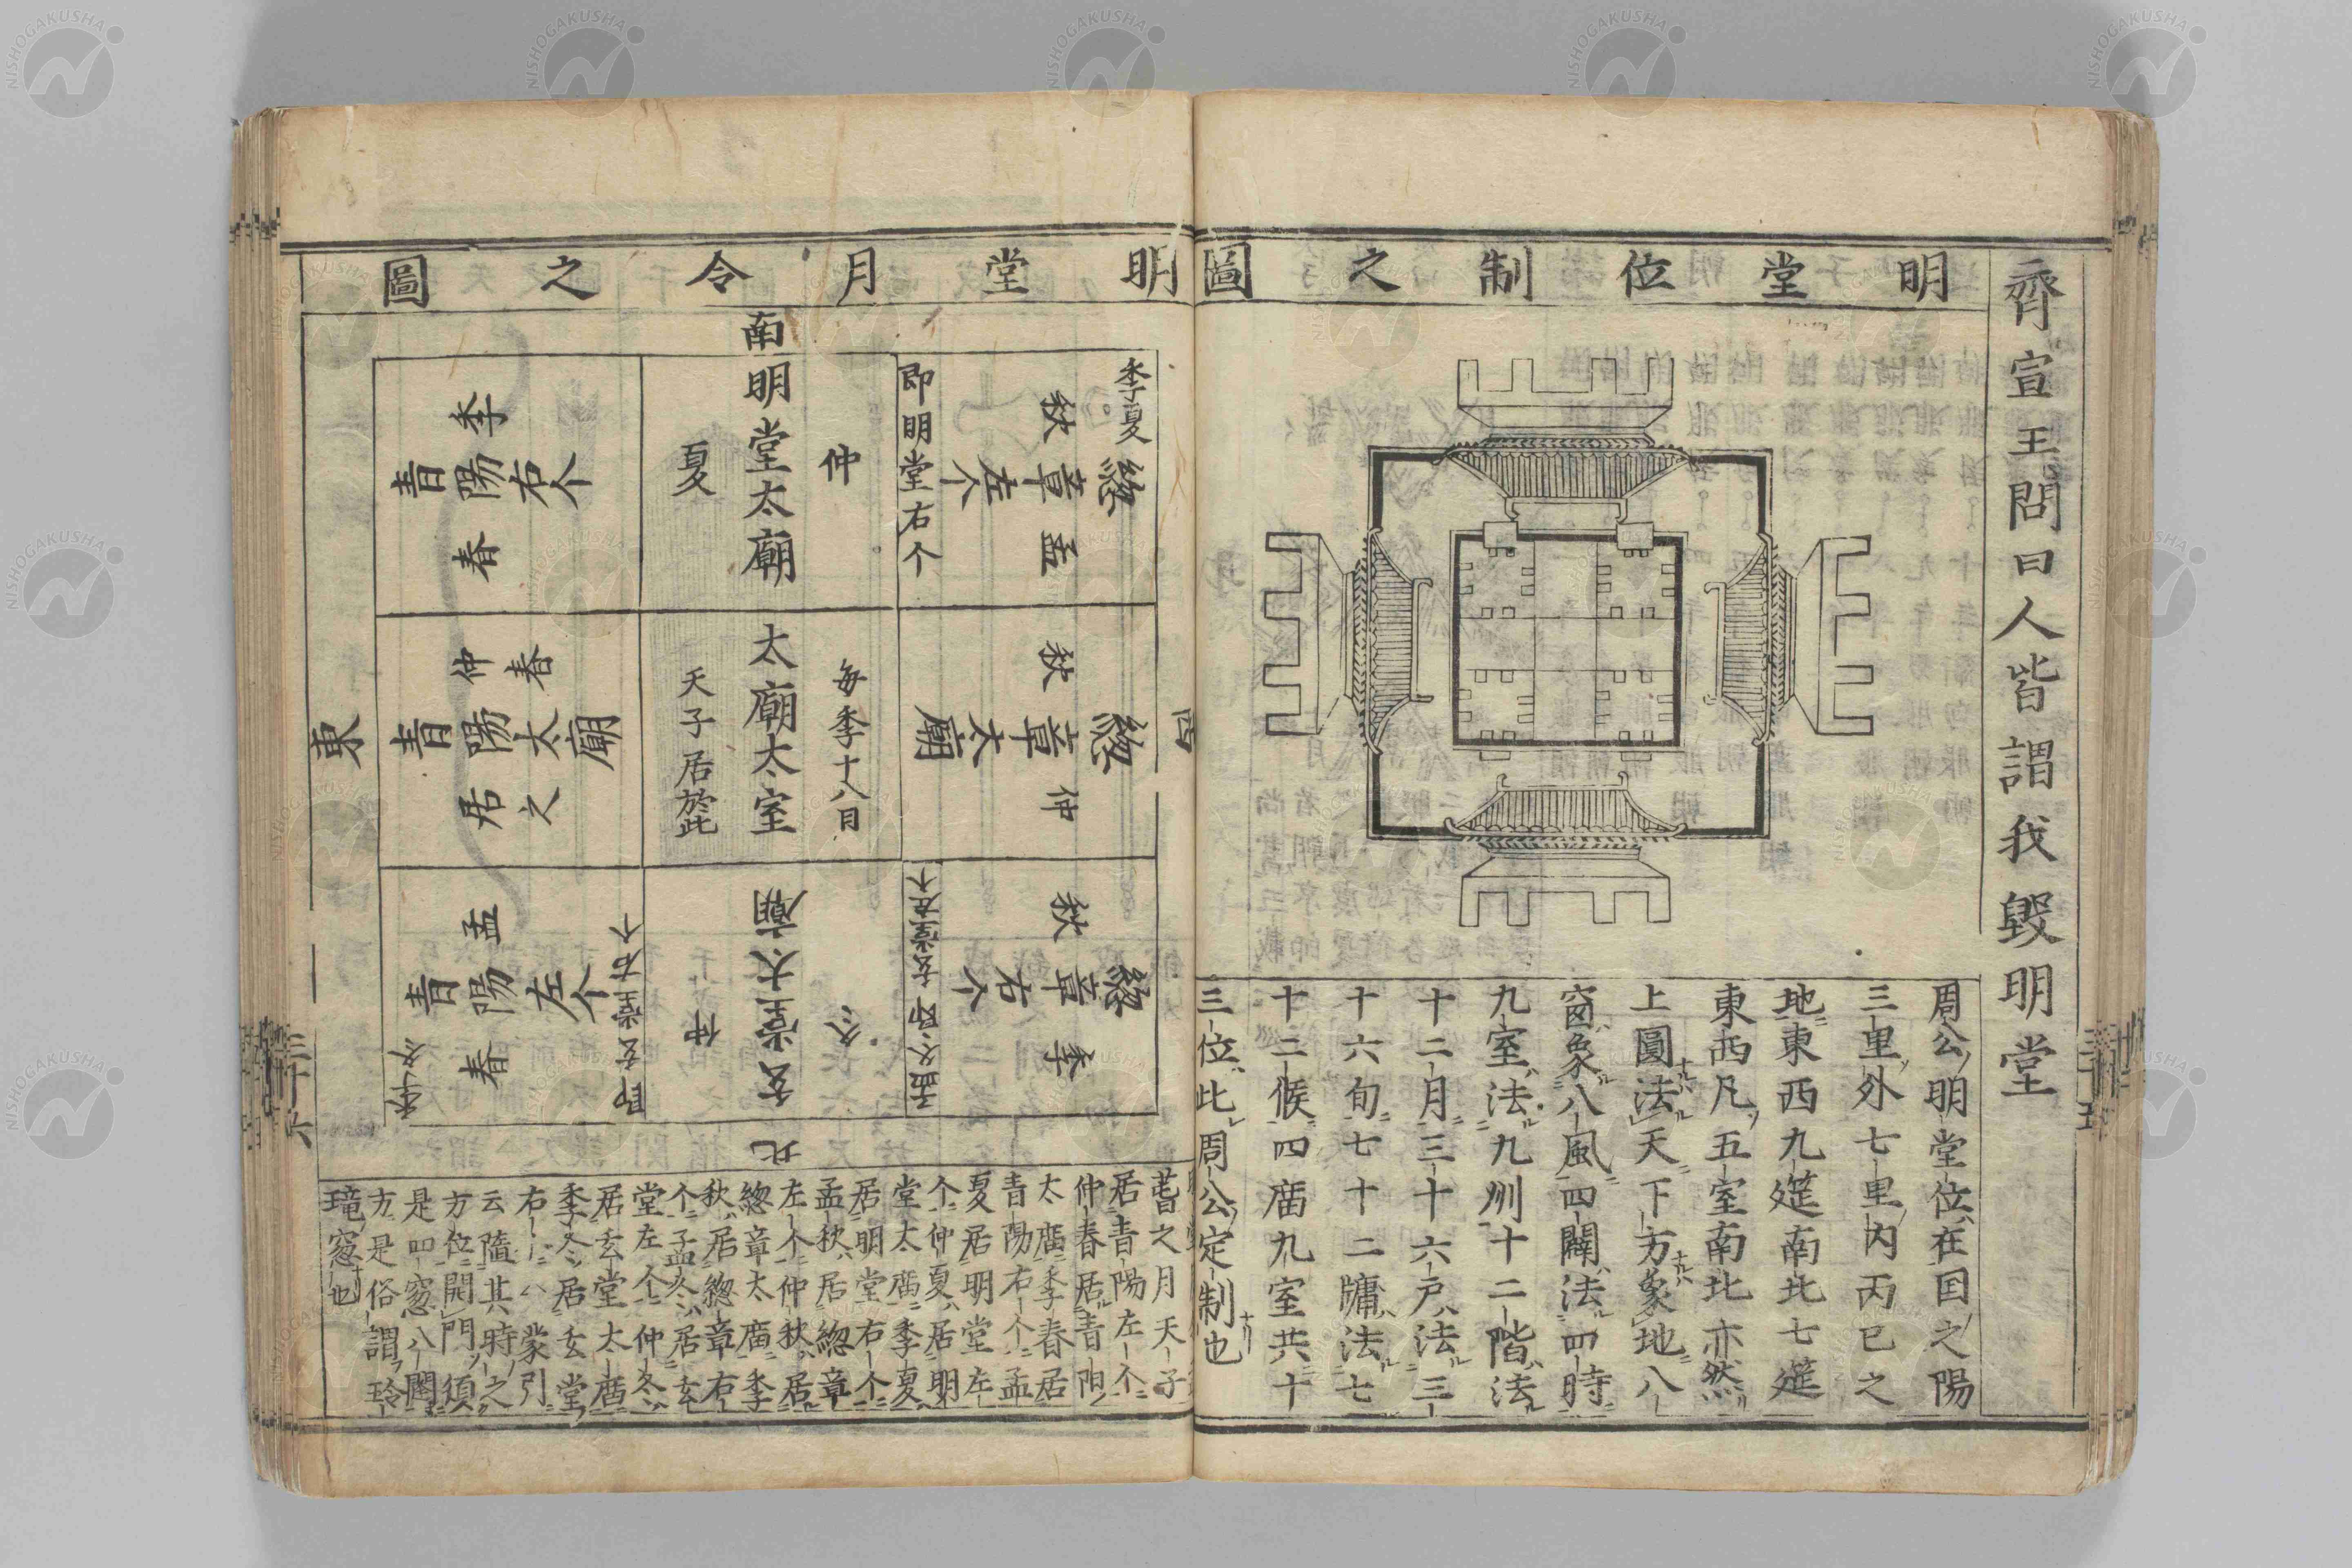 齊宣王問曰人皆謂我毀明堂
明堂位制之圖
周公明堂位在国之陽
三里外七里內丙巳之
地東西九筵南北七筵
東西凡五室南北亦然
上圓法天下方象地八
窗象八風四闥法四時
九室法九州十二階法
十二月三十六戶法三
十六旬七十二牖法七
十二候四庿九室共十
三位此周公定制也
明堂月令之圖
南
西
東
北
季夏
秋
孟
緫章左个
即明堂右个
仲
夏
明堂太廟
季
春
青陽右个
秋
仲
緫章太廟
每季十八日
太廟太室
天子居於此
仲春
青陽太廟
居之
秋
季
緫章右个
孟冬即玄堂左个
仲
冬
玄堂太廟
孟
春
青陽左个
季冬
即玄堂右个
之月天子
居青陽左个
仲春居青陽
太庿季春居
青陽右个孟
夏居明堂左
个仲夏居明
堂太庿季夏
居明堂右个
孟秋居緫章
左个仲秋居
緫章太庿季
秋居緫章右
个孟冬居玄
堂左个仲冬
居玄堂太庿
季冬居玄堂
右
蒙引
云隨其時之
方位開門須
是四窓八闥
方是俗謂玲
瓏窓也
三十六
NISHOGAKUSHA